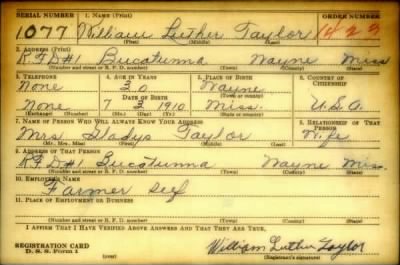 SERIAL NUMBER 1. NAME (Print) ORDER NUMBER
1077 William Luther Taylor 1425
(First) (Middle) (Last)
2. ADDRESS (Print)
R.F.D #1 Bucatunna Wayne Miss
(Number and street or R. F. D. number) (Town) (County) (State)
3. TELEPHONE 4. AGE IN YEARS 5. PLACE OF BIRTH 6. COUNTRY OF CITIZENSHIP
None 30 Wayne
DATE OF BIRTH (Town or county)
None 7 3 1910 Miss. U.S.A
(Exchange) (Number) (Mo.) (Day) (Yr.) (State or country)
7. NAME OF PERSON WHO WILL ALWAYS KNOW YOUR ADDRESS 8. RELATIONSHIP OF THAT PERSON
Mrs Gladys Taylor Wife
(Mr., Mrs., Miss) (First) (Middle) (Last)
9. ADDRESS OF THAT PERSON
R.F.D #1 Bucatunna Wayne Miss.
(Number and street or R. F. D. number) (Town) (County) (State)
10. EMPLOYER'S NAME
Farmer self
11. PLACE OF EMPLOYMENT OR BUSINESS
(Number and street or R. F. D. number) (Town) (County) (State)
I AFFIRM THAT I HAVE VERIFIED ABOVE ANSWERS AND THAT THEY ARE TRUE.
REGISTRATION CARD
D. S. S. Form 1 William Luther Taylor
(Registrant's signature)